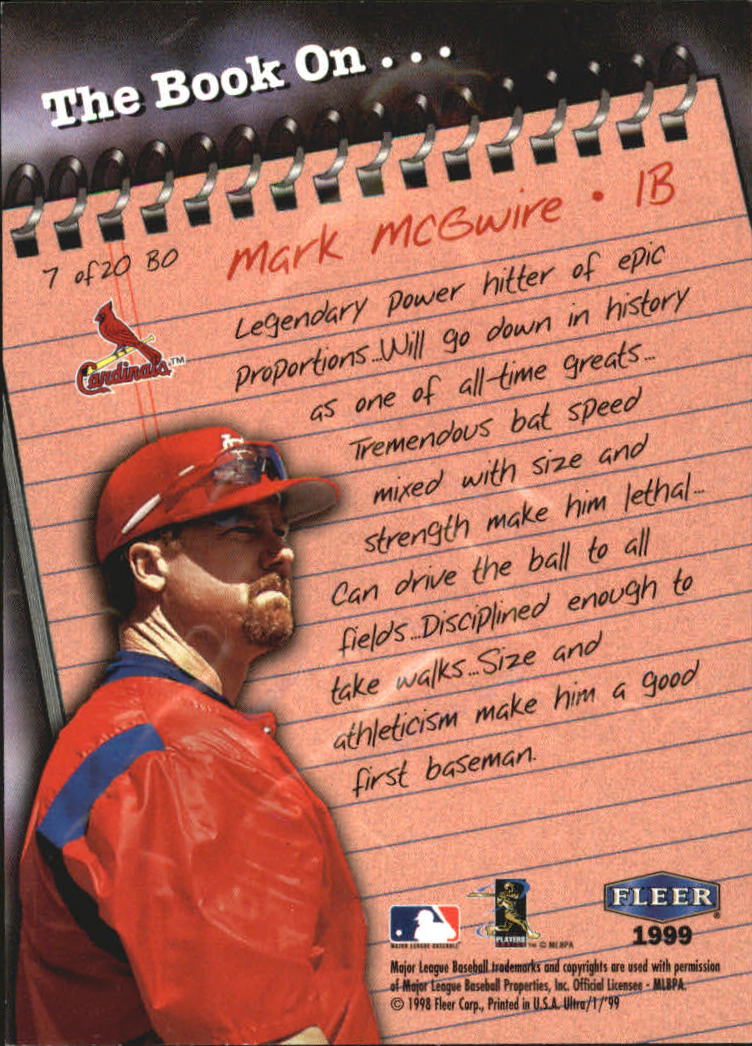 The Book On . . .
Mark McGwire • 1B
7 of 20 BO
Legendary power hitter of epic
proportions...Will go down in history
as one of all-time greats...
Tremendous bat speed
mixed with size and
strength make him lethal...
Can drive the ball to all
fields...Disciplined enough to
take walks...Size and
athleticism make him a good
first baseman.
Cardinals™
MAJOR LEAGUE BASEBALL
PLAYERS
™ © MLBPA
FLEER®
1999
Major League Baseball trademarks and copyrights are used with permission
of Major League Baseball Properties, Inc. Official Licensee - MLBPA.
© 1998 Fleer Corp., Printed in U.S.A. Ultra/1/'99